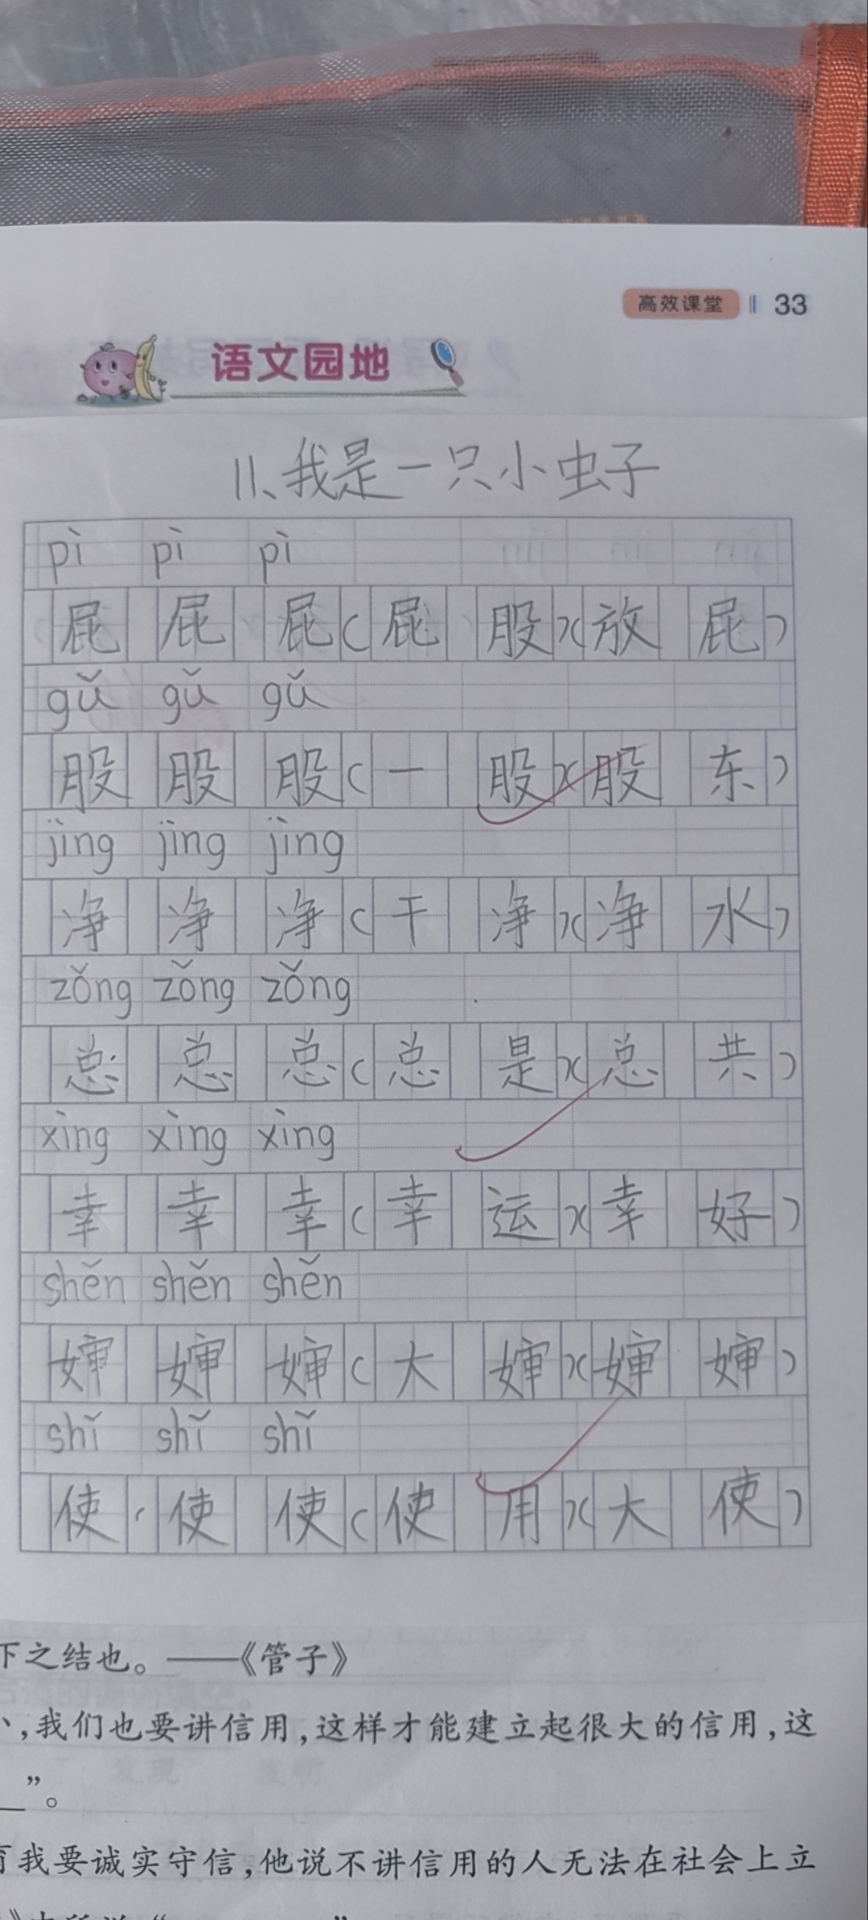 高效课堂 33
语文园地
11、我是一只小虫子
pì pì pì
屁 屁 屁(屁 股)(放 屁)
gǔ gǔ gǔ
股 股 股(一 股)(股 东)
jìng jìng jìng
净 净 净(干 净)(净 水)
zǒng zǒng zǒng
总 总 总(总 是)(总 共)
xìng xìng xìng
幸 幸 幸(幸 运)(幸 好)
shěn shěn shěn
婶 婶 婶(大 婶)(婶 婶)
shǐ shǐ shǐ
使 使 使(使 用)(大 使)
下之结也。——《管子》
,我们也要讲信用,这样才能建立起很大的信用,这
”。
我要诚实守信,他说不讲信用的人无法在社会上立